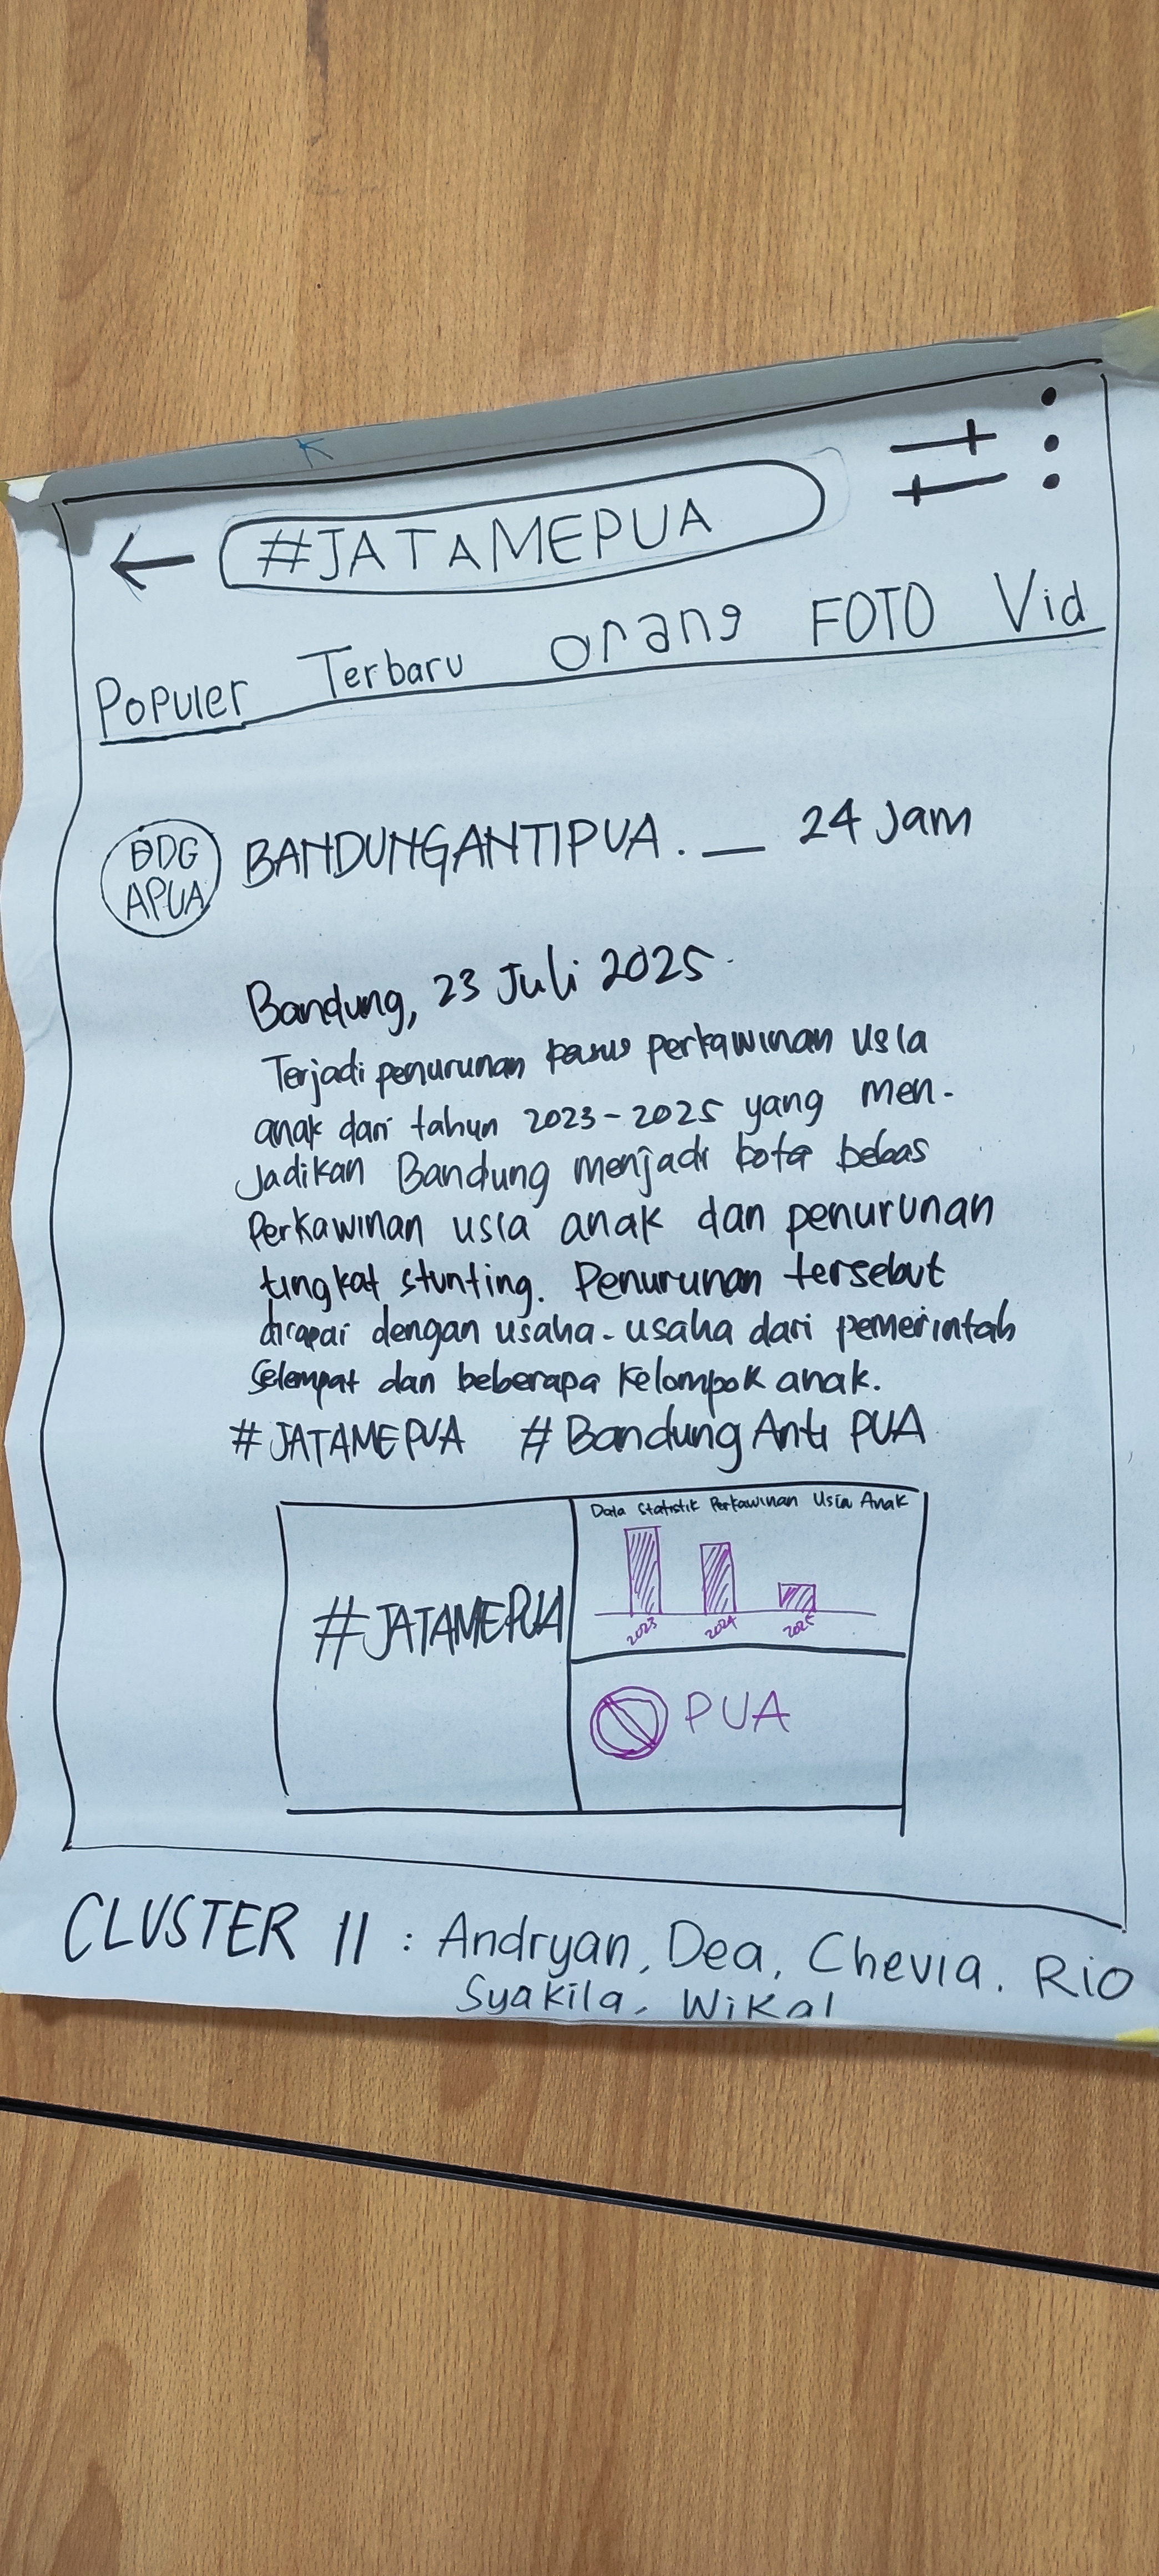 #JATAMEPUA
Populer Terbaru orang FOTO Vid
BDG
APUA
BANDUNGANTIPUA._ 24 Jam
Bandung, 23 Juli 2025.
Terjadi penurunan kasus perkawinan usia
anak dari tahun 2023-2025 yang men-
jadikan Bandung menjadi kota bebas
Perkawinan usia anak dan penurunan
tingkat stunting. Penurunan tersebut
dicapai dengan usaha-usaha dari pemerintah
Selempat dan beberapa kelompok anak.
#JATAMEPUA #BandungAnti PUA
#JATAMEPUA
Data Statistik Perkawinan Usia Anak
2023 2024 2025
PUA
CLUSTER II : Andryan, Dea, Chevia, Rio
Syakila, Wikal